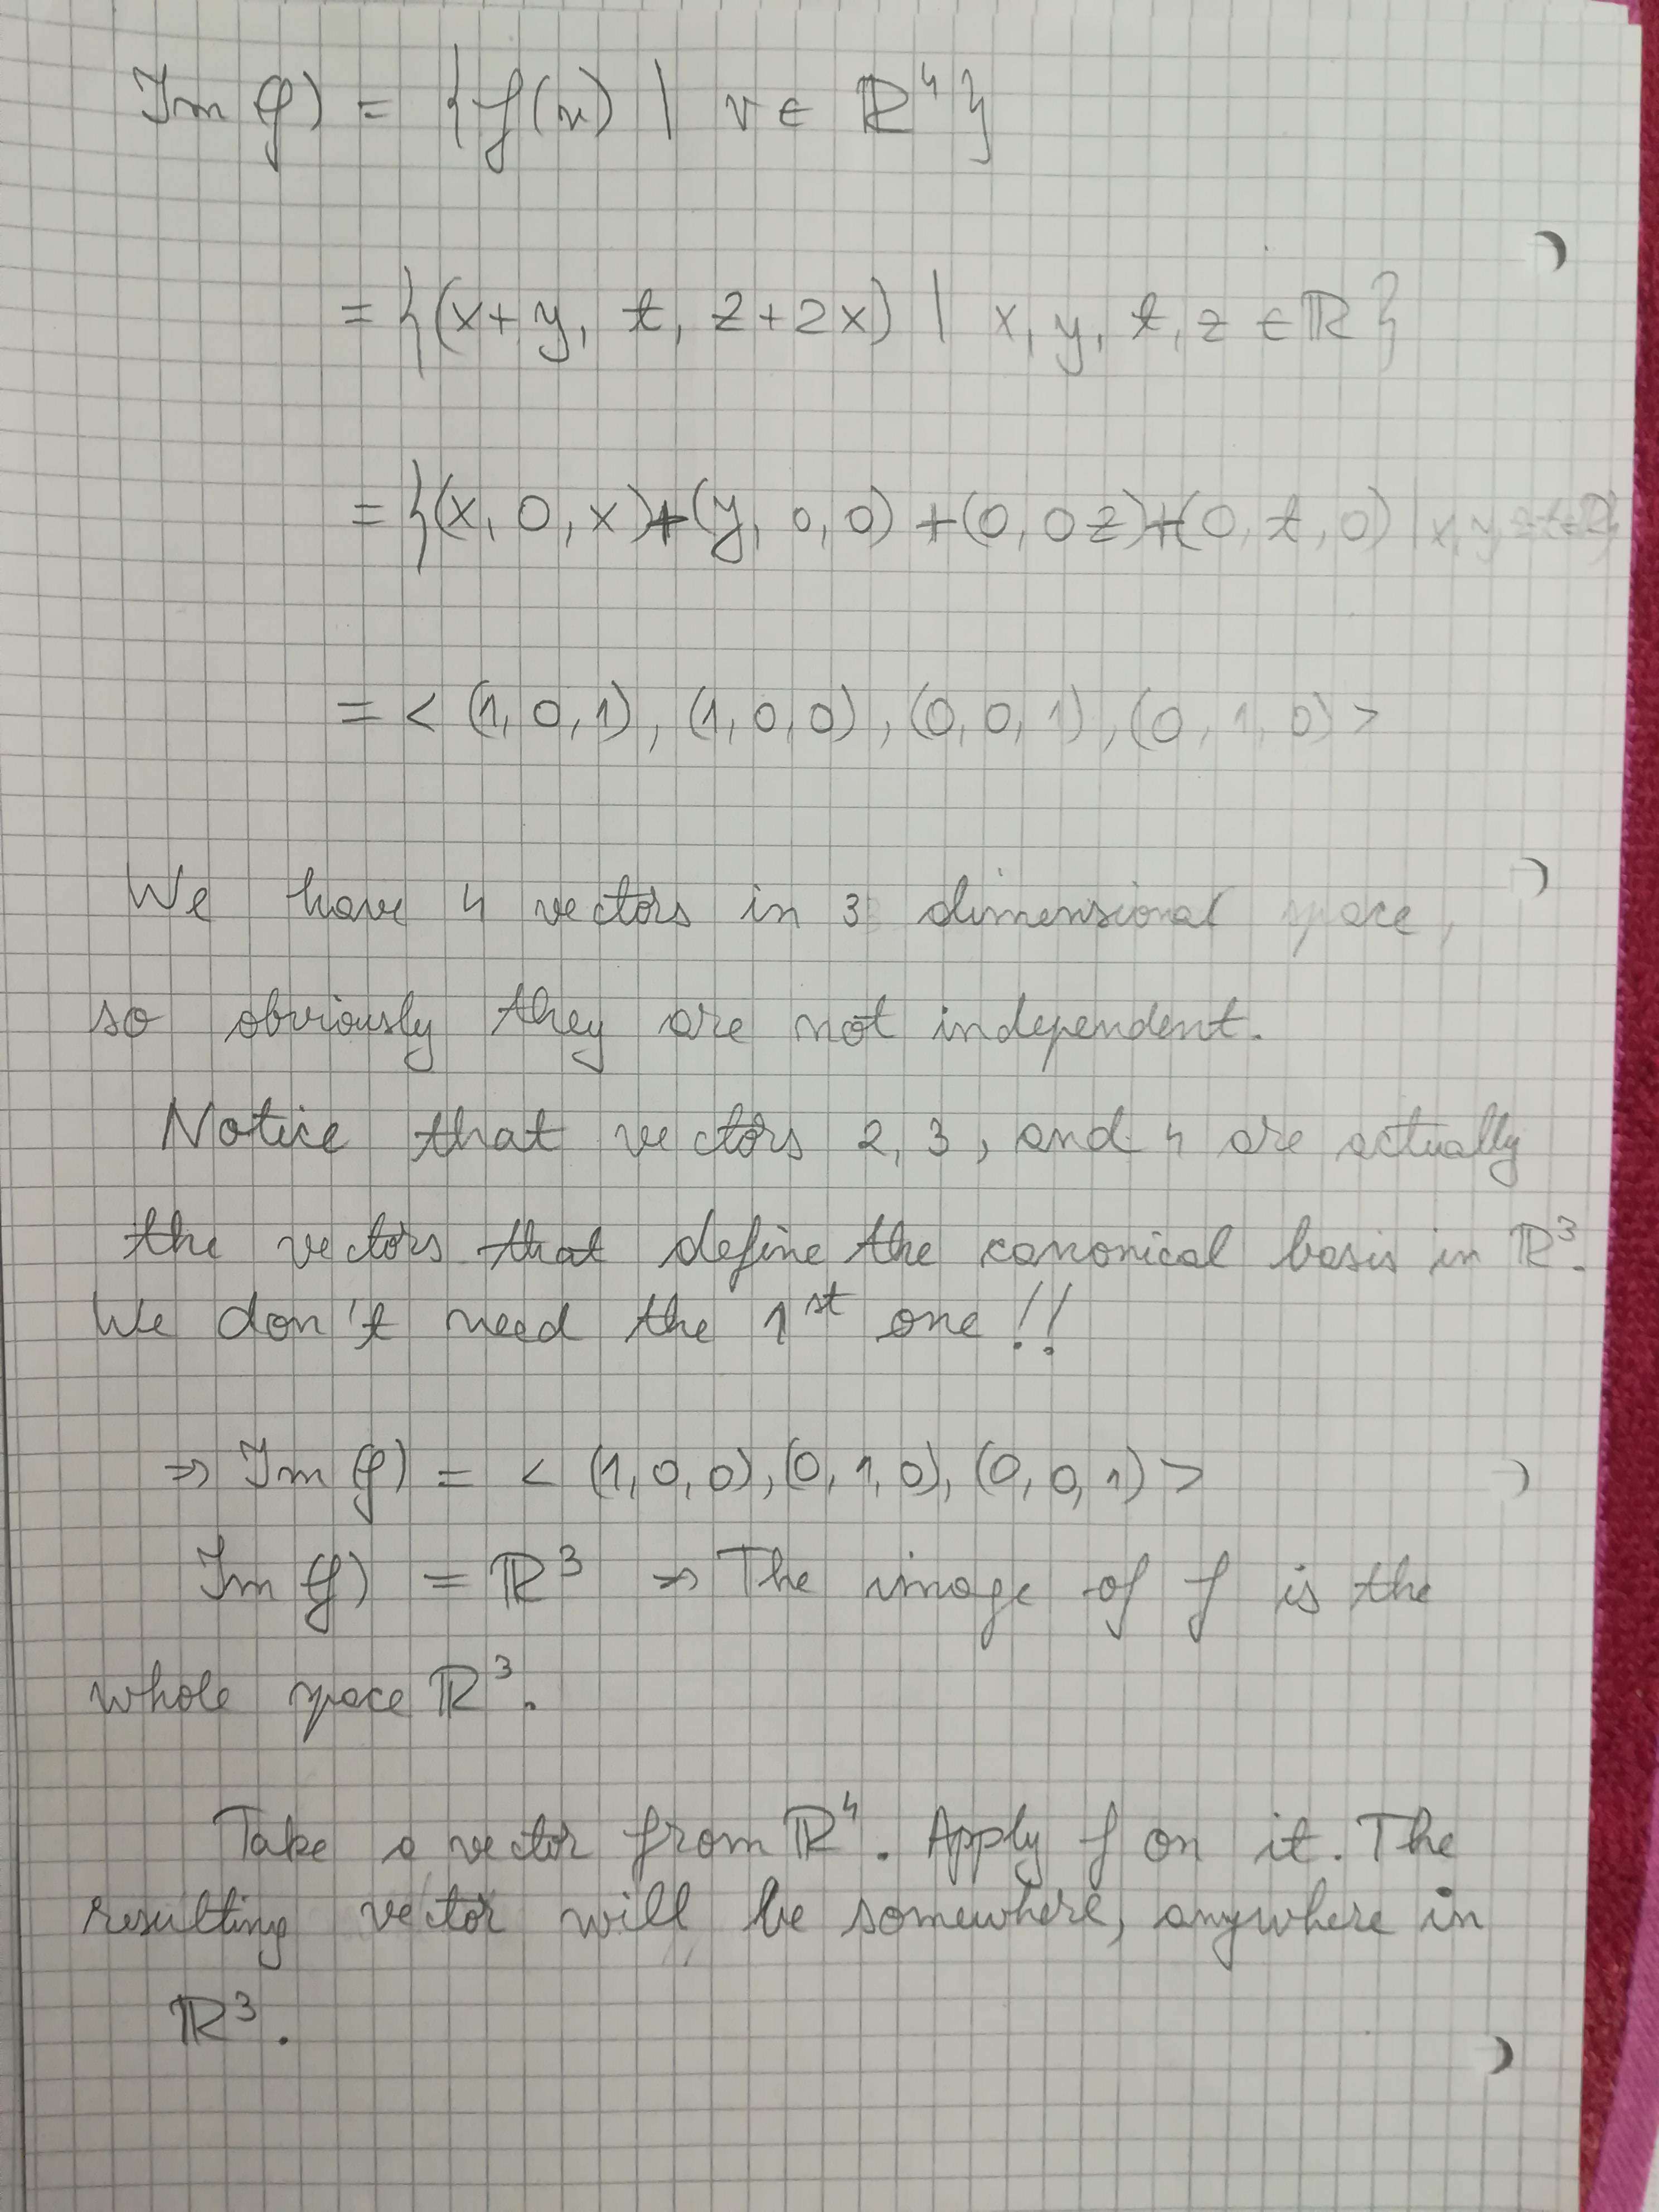 Im (f) = {f(v) | v ∈ ℝ⁴}
= {(x+y, t, z+2x) | x, y, t, z ∈ ℝ}
= {(x, 0, x)+(y, 0, 0) +(0, 0 z)+(0, t, 0) | x, y, z t ∈ ℝ}
= < (1, 0, 1), (1, 0, 0), (0, 0, 1), (0, 1, 0) >
We have 4 vectors in 3 dimensional space,
so obviously they are not independent.
Notice that vectors 2, 3, and 4 are actually
the vectors that define the canonical basis in ℝ³.
We don't need the 1st one!!
⇒ Im (f) = < (1, 0, 0), (0, 1, 0), (0, 0, 1) >
Im (f) = ℝ³ ⇒ The image of f is the
whole space ℝ³.
Take a vector from ℝ⁴. Apply f on it. The
resulting vector will be somewhere, anywhere in
ℝ³.